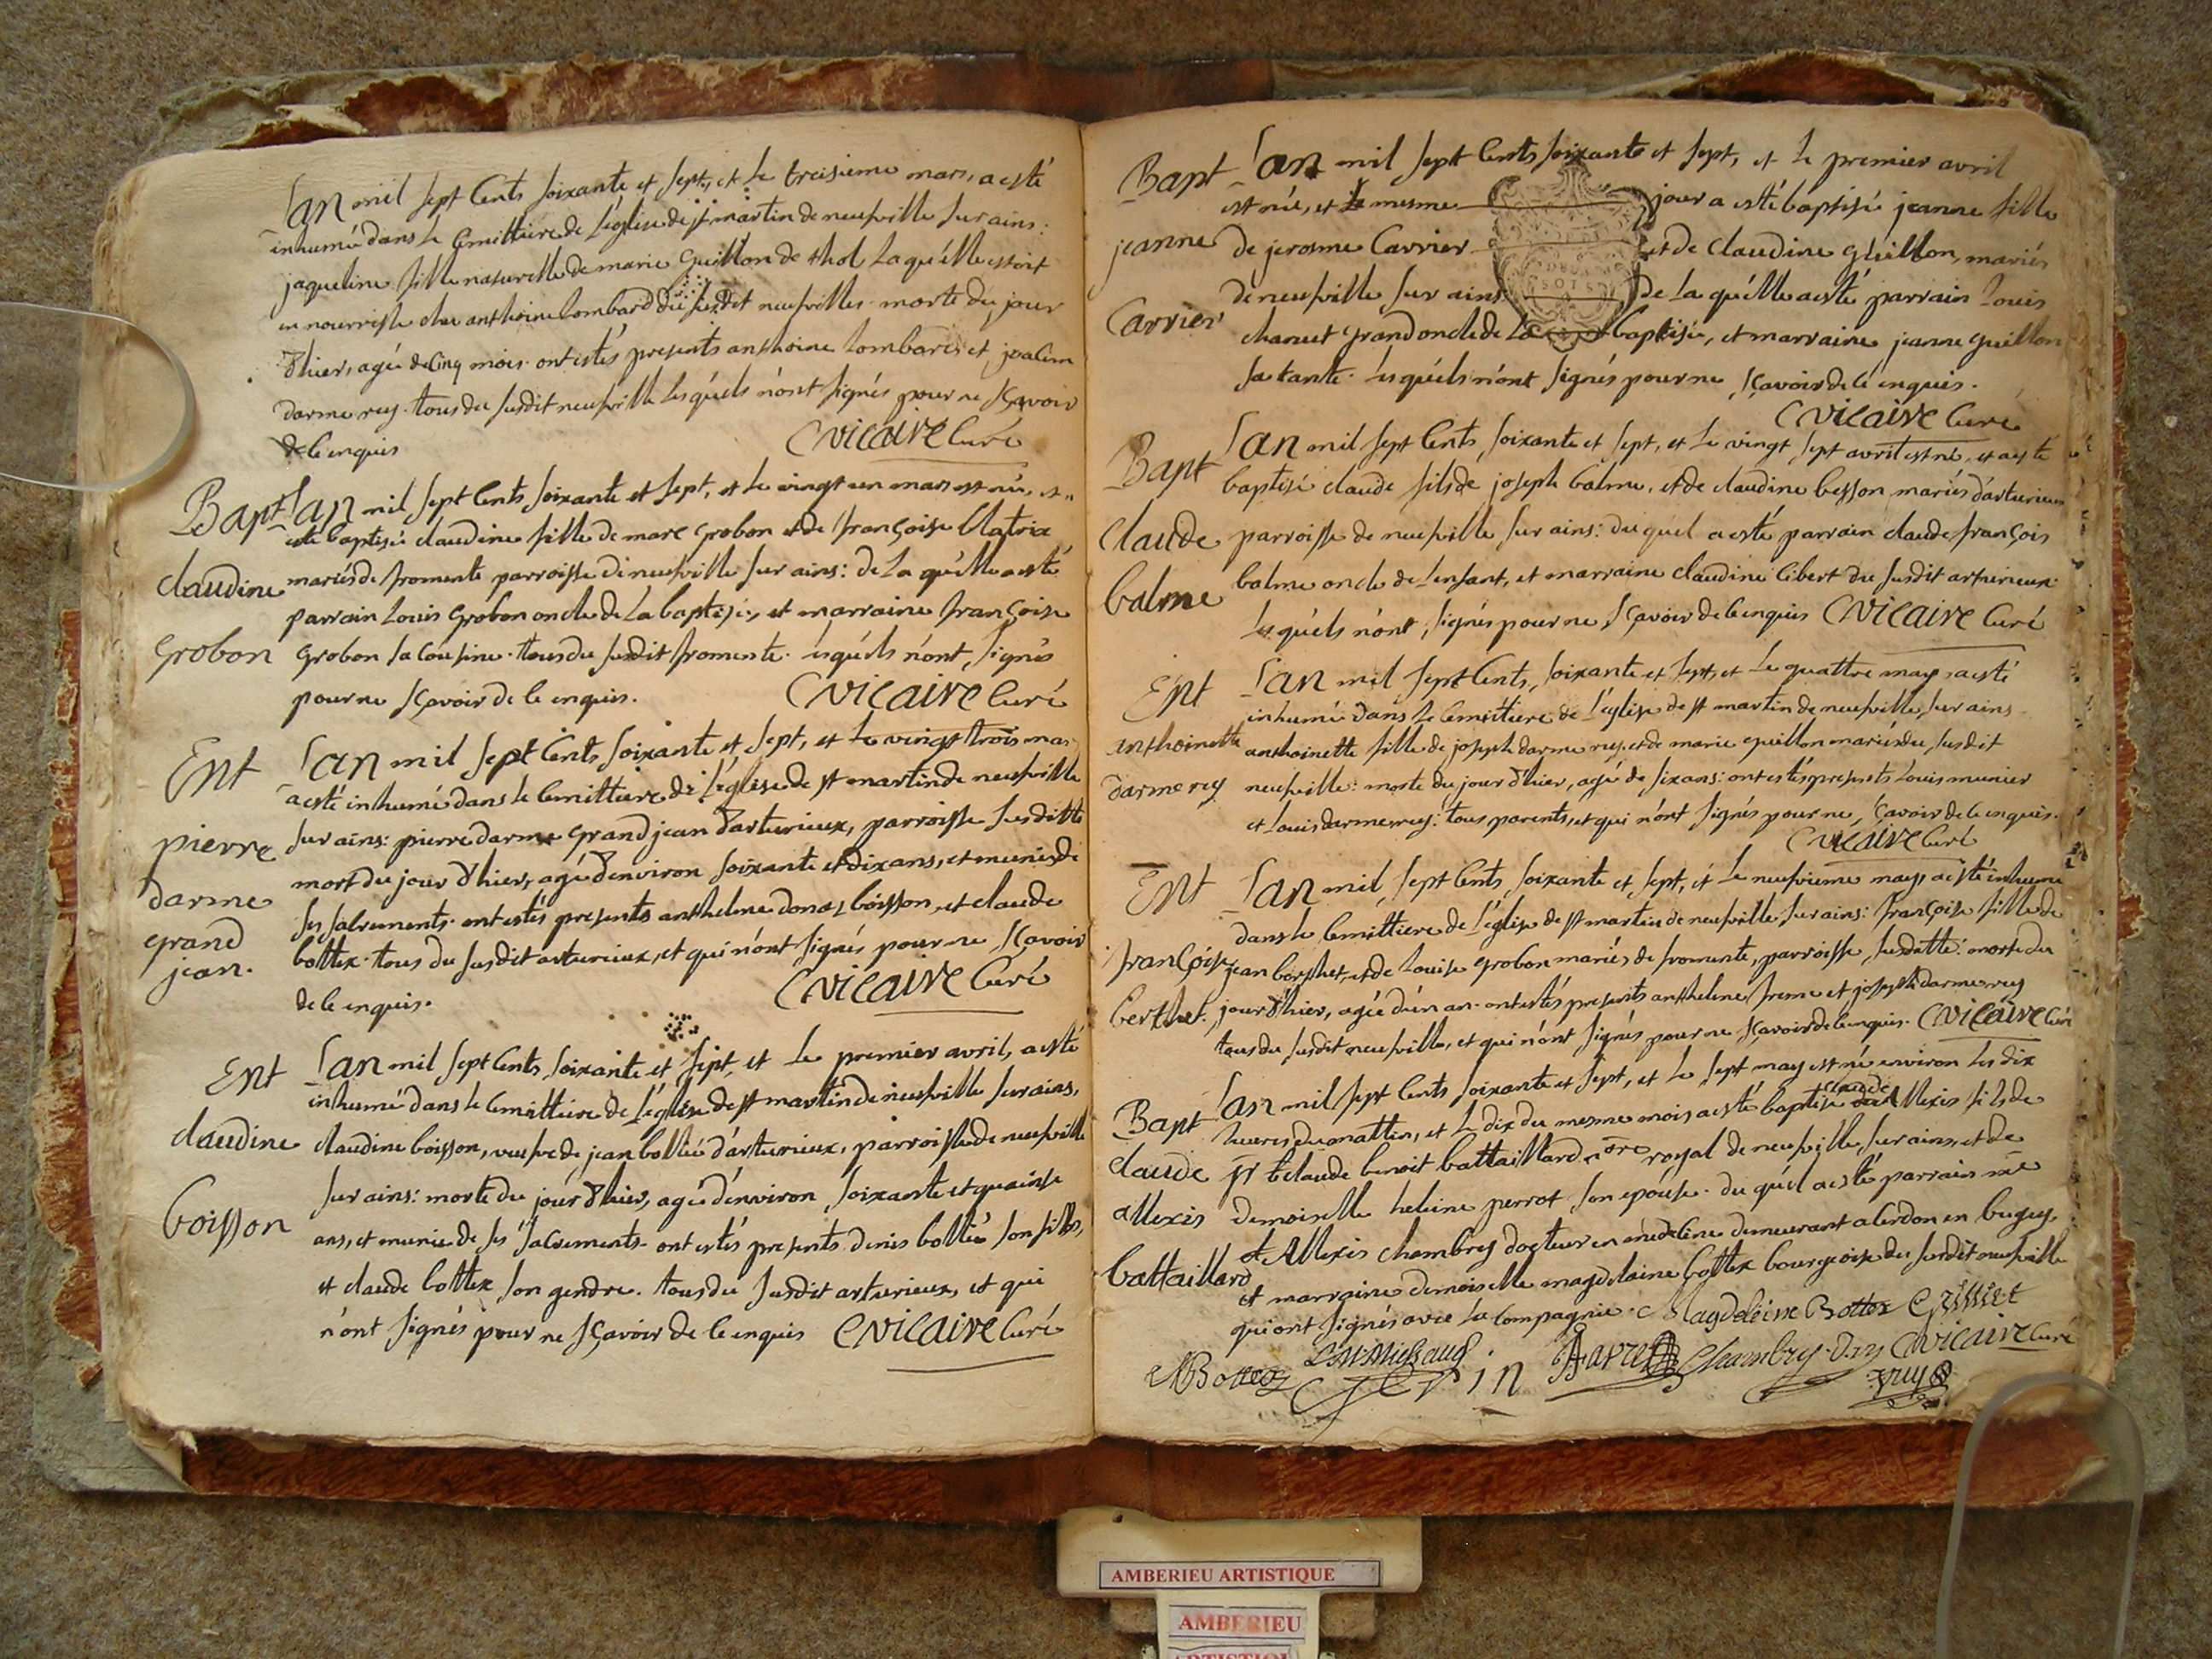 L'an mil sept cents soixante et sept, et le treisieme mars, a esté
inhumée dans le cimittiere de l'églize de st martin de neufville sur ains:
jaqueline fille naturelle de marie guillon de thol laqu'élle estoit
en nourrisse chez anthoine lombard du susdit neufville morte du jour
d'hier, agée de cinq mois. ont estés presents anthoine lombard et
darmerey. tous du susdit neufville lesquéls n'ont signés pour ne sçavoir
de ce enquis
Cvicaire Curé
Bapt
L'an mil sept cents soixante et sept, et le vingt un mars est née, et a
esté baptisée claudine fille de marc grobon et de françoise Clatrix
claudine
mariés de fromente parroisse de neufville sur ains: de laqu'élle a esté
parrain Louis grobon oncle de la baptisée, et marraine françoise
grobon
grobon sa cousine. tous du susdit fromente. lesquéls n'ont signés
pour ne sçavoir de ce enquis.
Cvicaire Curé
Ent
L'an mil sept cents soixante et sept, et le vingt trois mars
a esté inhumé dans le cimittiere de l'églize de st martin de neufville
pierre
sur ains: pierre darme grand jean d'arturieux, parroisse susditte
mort du jour d'hier, agé d'environ soixante et dix ans, et munis de
darme
ses sacrements. ont estés presents anthelme donat boisson, et claude
grand
bottex. tous du susdit arturieux, et qui n'ont signés pour ne sçavoir
jean.
de ce enquis.
Cvicaire Curé
Ent
L'an mil sept cents soixante et sept, et le premier avril, a esté
inhumé dans le cimittiere de l'églize de st martin de neufville sur ains,
claudine
claudine boisson, veufve de jean bollié d'arturieux, parroisse de neufville
sur ains: morte du jour d'hier, agée d'environ soixante et quainse
boisson
ans, et munie de sés sacrements. ont estés presents denis bollié son fils,
et claude bottex son gendre. tous du susdit arturieux, et qui
n'ont signés pour ne sçavoir de ce enquis Cvicaire Curé
Bapt
L'an mil sept cents soixante et sept, et le premier avril
est née, et le mesme jour a esté baptisée jeanne fille
jeanne
de jerosme Carrier et de claudine guillon, mariés
de neufville sur ains de laqu'élle a esté parrain Louis
Carrier
charuet grand oncle de la baptisée, et marraine jeanne guillon
sa tante. lesquéls n'ont signés pour ne sçavoir de ce enquis.
Cvicaire Curé
Bapt
L'an mil sept cents soixante et sept, et le vingt sept avril est né, et a esté
baptisé claude fils de joseph balme, et de claudine besson mariés d'arturieux
claude
parroisse de neufville sur ains: duquel a esté parrain claude françois
balme
balme oncle de l'enfant, et marraine claudine Cibert du susdit arturieux.
lesquéls n'ont signés pour ne sçavoir de ce enquis Cvicaire Curé
Ent
L'an mil sept cents soixante et sept, et le quattre may a esté
inhumée dans le cimittiere de l'églize de st martin de neufville sur ains
anthoinette
anthoinette fille de joseph darmerey, et de marie guillon mariés du susdit
darmerey
neufville: morte du jour d'hier, agée de six ans: ont estés presents Louis munier
et Louis darmerey: tous parents, et qui n'ont signés pour ne sçavoir de ce enquis.
Cvicaire Curé
Ent
L'an mil sept cents soixante et sept, et le neufvieme may a esté inhumée
dans le cimittiere de l'églize de st martin de neufville sur ains: françoise fille de
françoise
jean berthet, et de Louise grobon mariés de fromente, parroisse susditte: morte du
berthet.
jour d'hier, agée d'un an. ont estés presents anthelme freme et joseph darmerey
tous du susdit neufville, et qui n'ont signés pour ne sçavoir de ce enquis. Cvicaire Curé
Bapt
L'an mil sept cents soixante et sept, et le sept may est né environ les dix
heures du mattin, et le dix du mesme mois a esté baptisé claude Allexis fils de
claude
sr claude benoit battaillard nore royal de neufville sur ains, et de
allexis
demoiselle heleine perrot son epouse. duquél a esté parrain me
Allexis chambrey docteur en medecine demeurant a cerdon en bugey.
battaillard
et marraine demoiselle magdelaine bottex bourgeoise du susdit neufville
qui ont signés avec la compagnie. Magdeleine Bottex Grilliet
MBottex Michaud Favre Chambrey D.m Cvicaire Curé
AMBERIEU ARTISTIQUE
AMBERIEU
ARTISTIQUE